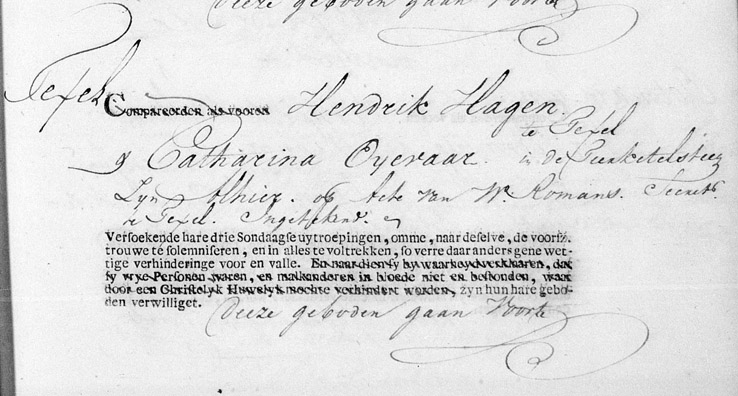 Deeze geboden gaan Voorts
Texel.
Compareerden als vooren Hendrik Hagen.
te Texel
Catharina Oyevaar. in de
Zyn Alhier. op Acte van W. Romans. Secrets.
te Texel. Ingetekend.
Versoekende hare drie Sondaagse uytroepingen, omme, naar deselve, de voorsz.
trouwe te solemniseren, en in alles te voltrekken, so verre daar anders gene wet-
tige verhinderinge voor en valle. En naar dien sy by waarheyd verklaren, dat
sy vrye Personen waren, en malkanderen in bloede niet en bestonden, waar
door een Christelyk Huwelyk mochte verhindert worden, zyn hun hare gebo-
den verwilliget.
Deeze geboden gaan Voorts